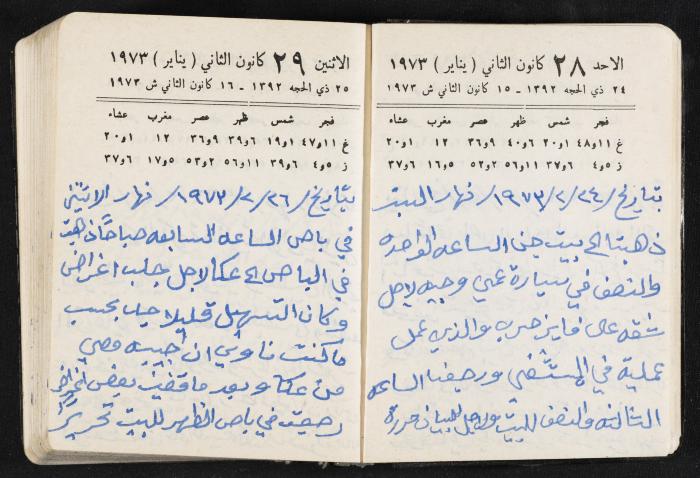 الاحد ٢٨ كانون الثاني ( يناير ) ١٩٧٣
٢٤ ذي الحجه ١٣٩٢ ـ ١٥ كانون الثاني ش ١٩٧٣
فجر شمس ظهر عصر مغرب عشاء
غ ١١و٤٨ ١و٢٠ ٦و٤٠ ٩و٣٦ ١٢ ١و٢٠
ز ٥و٤ ٦و٣٧ ١١و٥٦ ٢و٥٢ ٥و١٦ ٦و٣٧
بتاريخ /٢٤/ ٢/ ١٩٧٣/ نهار السبت
ذهبنا الى بيت جن الساعه الواحده
والنصف في سيارة عمي وجيه لاجل
شقه على فايز حرب والذي عمل
عملية في المستشفى ورجعنا الساعه
الثالثه والنصف للبيت ولاجل البيان حررة
الاثنين ٢٩ كانون الثاني ( يناير ) ١٩٧٣
٢٥ ذي الحجه ١٣٩٢ ـ ١٦ كانون الثاني ش ١٩٧٣
فجر شمس ظهر عصر مغرب عشاء
غ ١١و٤٧ ١و١٩ ٦و٣٩ ٩و٣٦ ١٢ ١و٢٠
ز ٥و٤ ٦و٣٩ ١١و٥٦ ٢و٥٣ ٥و١٧ ٦و٣٧
بتاريخ /٢٦/ ٢/ ١٩٧٣/ نهار الاثنين
في باص الساعه السابعه صباحًا ذهبت
في الباص الى عكا لاجل جلب اغراض
وكان التسهيل قليلا حيث بحسب
ما كنت ناوي ان أجيبه معي
من عكا وبعد ما قضيت بعض
رجعت في باص الظهر للبيت تحريرًا